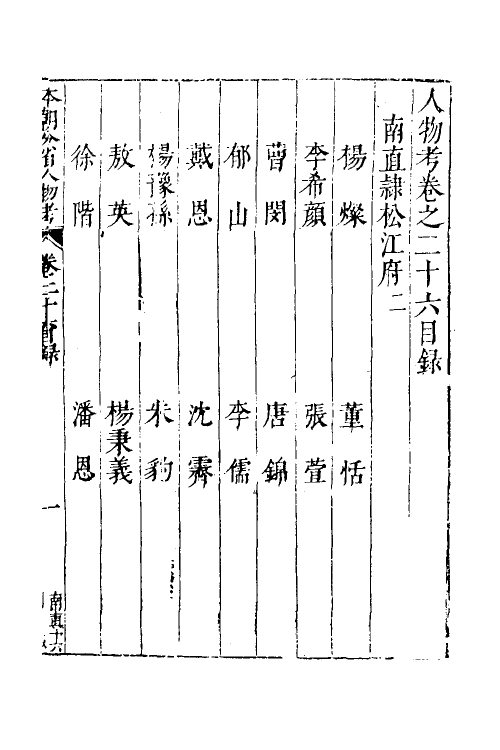 人物考卷之二十六目錄
南直隸松江府二
楊燦 董恬
李希顏 張萱
曹閔 唐錦
郁山 李儒
戴恩 沈霽
楊豫孫 朱豹
敖英 楊秉義
徐階 潘恩
本朝分省人物考 卷二十六目錄 一 南直十六